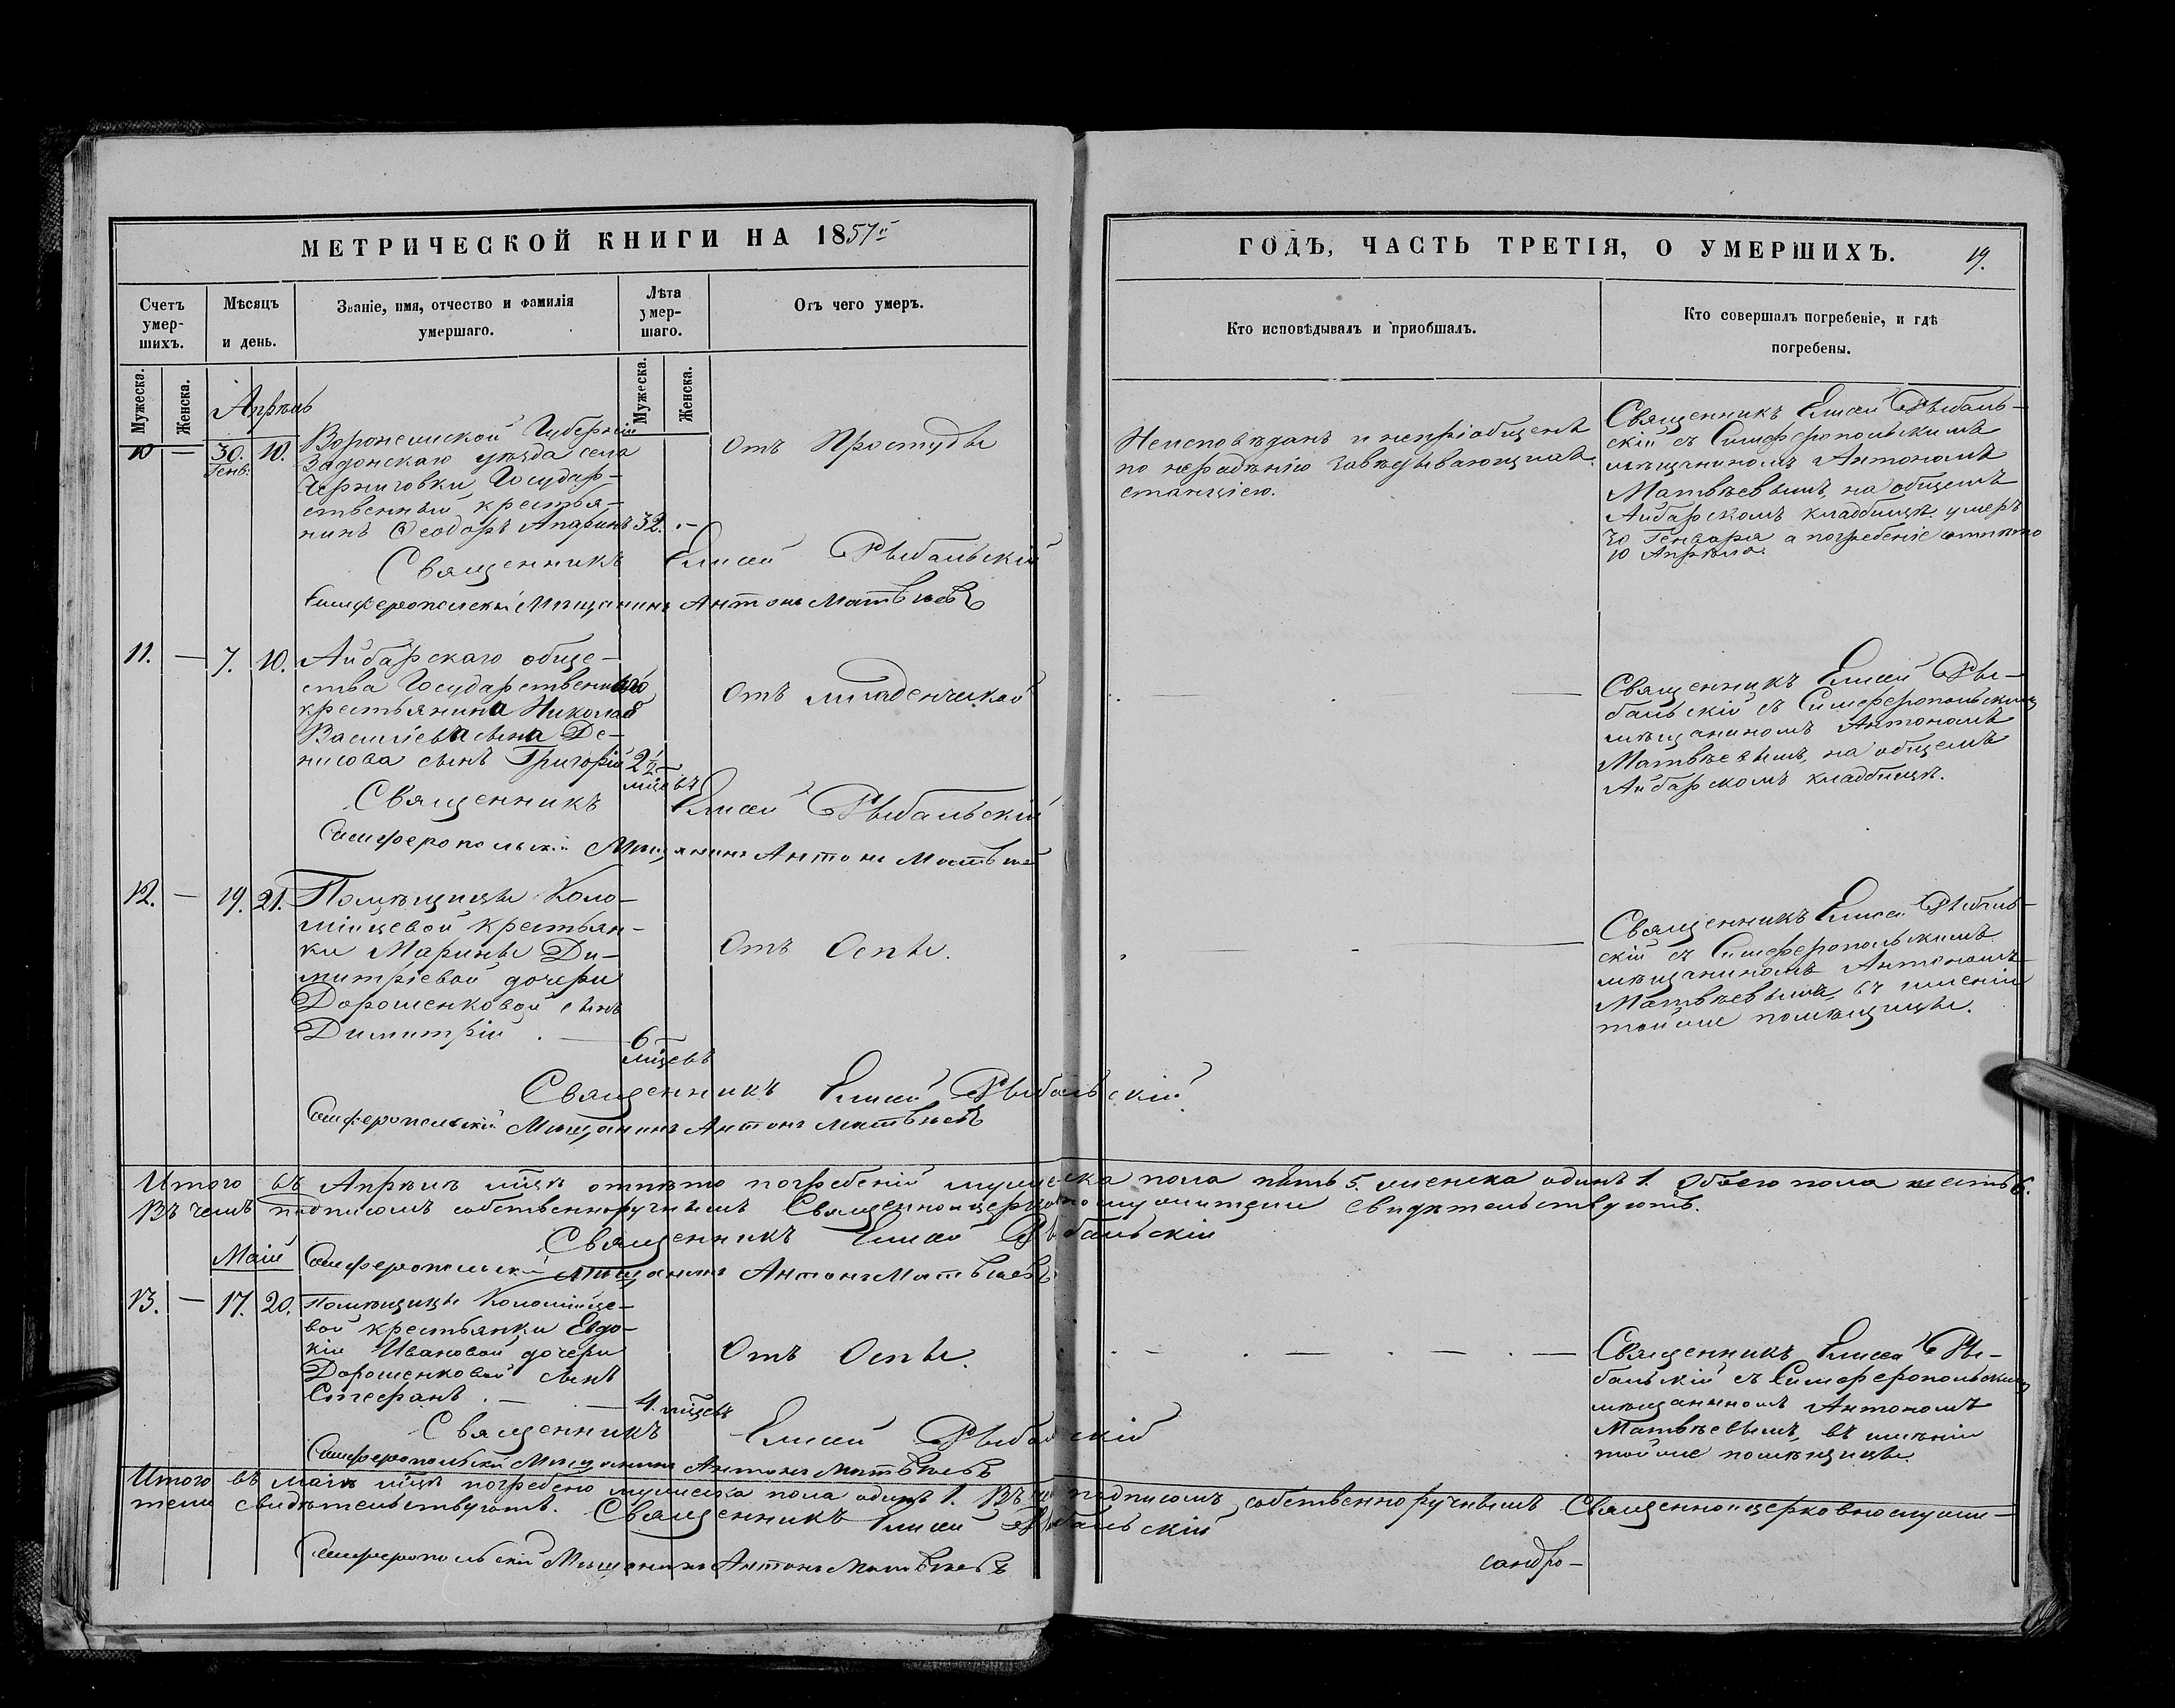 МЕТРИЧЕСКОЙ КНИГИ НА 1857й
Счетъ умер- шихъ.
Мѣсяцъ и день.
Званіе, имя, отчество и фамилія умершаго.
Лѣта умер- шаго.
Отъ чего умеръ.
Мужеска.
Женска.
Мужеска.
Женска.
Апрѣль
10 — 30. Генв. 10.
Воронежской Губерніи
Задонскаго уѣзда села
Черниговки, Государ-
ственный крестья-
нинъ Ѳеодоръ Апаринъ 32. —
Отъ Простуды
Священникъ Елисей Рыбальскій
Симферопольскій Мѣщанинъ Антонъ Матвѣевъ
11. — 7. 10.
Айбарскаго обще-
ства Государственнаго
крестьянина Николая
Васильева сына Де-
нисова сынъ Григорій 2 1/2
мѣсцевъ
Отъ младенческой
Священникъ Елисей Рыбальскій
Симферопольскій Мѣщанинъ Антонъ Матвѣевъ
12. — 19. 21.
Помѣщицы Коло-
мійцевой крестьян-
ки Марины Ди-
митріевой дочери
Дорошенковой сынъ
Димитрій . — 6
мѣсцевъ
Отъ Оспы.
Священникъ Елисей Рыбальскій
Симферопольскій Мѣщанинъ Антонъ Матвѣевъ
Итого въ Апрѣлѣ мсцѣ отпѣто погребеній мужеска пола пять 5. женска одинъ 1. Обоего пола шесть 6.
Въ чемъ подписомъ собственноручнымъ Священноицерковнослужители свидѣтельствуютъ.
Священникъ Елисей Рыбальскій
Маій
Симферопольскій Мѣщанинъ Антонъ Матвѣевъ
13. — 17. 20.
Помѣщицы Коломійце-
вой крестьянки Евдо-
кіи Ивановой дочери
Дорошенковой сынъ
Стефанъ . — 4. мѣсцевъ
Отъ Оспы.
Священникъ Елисей Рыбальскій
Симферопольскій Мѣщанинъ Антонъ Матвѣевъ
Итого въ маіѣ мсцѣ погребено мужеска пола одинъ 1. Въ чемъ подписомъ собственноручнымъ Священноицерковнослужи-
тели свидѣтельствуютъ. Священникъ Елисей Рыбальскій
Симферопольскій Мѣщанинъ Антонъ Матвѣевъ
ГОДЪ, ЧАСТЬ ТРЕТІЯ, О УМЕРШИХЪ.
19.
Кто исповѣдывалъ и пріобщалъ.
Кто совершалъ погребеніе, и гдѣ погребены.
Неисповѣданъ и непріобщенъ
по нерадѣнію завѣдывающихъ
станціею.
Священникъ Елисей Рыбаль-
скій съ Симферопольскимъ
мѣщаниномъ Антономъ
Матвѣевымъ, на общемъ
Айбарскомъ кладбищѣ. умеръ
30 Генваря а погребеніе отпѣто
10 Апрѣля.
Священникъ Елисей Ры-
бальскій съ Симферопольскимъ
мѣщаниномъ Антономъ
Матвѣевымъ, на общемъ
Айбарскомъ кладбищѣ.
Священникъ Елисей Рыбаль-
скій съ Симферопольскимъ
мѣщаниномъ Антономъ
Матвѣевымъ, въ имѣніи
тойже помѣщицы.
Священникъ Елисей Ры-
бальскій съ Симферопольскимъ
мѣщаниномъ Антономъ
Матвѣевымъ, въ имѣніи
тойже помѣщицы.
сандро-